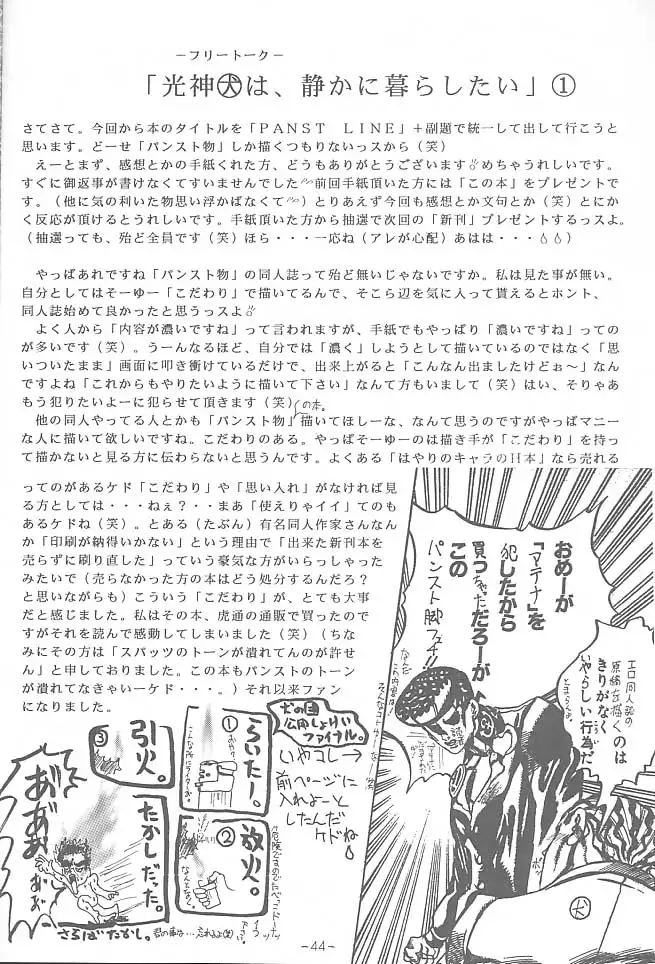 －フリートーク－
「光神犬は、静かに暮らしたい」①
さてさて。今回から本のタイトルを「ＰＡＮＳＴ ＬＩＮＥ」＋副題で統一して出して行こうと
思います。どーせ「パンスト物」しか描くつもりないっスから（笑）
えーとまず、感想とかの手紙くれた方、どうもありがとうございます めちゃうれしいです。
すぐに御返事が書けなくてすいませんでした 前回手紙頂いた方には「この本」をプレゼントで
す。（他に気の利いた物思い浮かばなくて）とりあえず今回も感想とか文句とか（笑）とにか
く反応が頂けるとうれしいです。手紙頂いた方から抽選で次回の「新刊」プレゼントするっスよ。
（抽選っても、殆ど全員です（笑）ほら・・・一応ね（アレが心配）あはは・・・
やっぱあれですね「パンスト物」の同人誌って殆ど無いじゃないですか。私は見た事が無い。
自分としてはそーゆー「こだわり」で描いてるんで、そこら辺を気に入って貰えるとホント、
同人誌始めて良かったと思うっスよ
よく人から「内容が濃いですね」って言われますが、手紙でもやっぱり「濃いですね」っての
が多いです（笑）。うーんなるほど、自分では「濃く」しようとして描いているのではなく「思
いついたまま」画面に叩き衝けているだけで、出来上がると「こんなん出ましたけどぉ～」なん
ですよね「これからもやりたいように描いて下さい」なんて方もいまして（笑）はい、そりゃあ
もう犯りたいよーに犯らせて頂きます（笑）
の本。
他の同人やってる人とかも「パンスト物」描いてほしーな、なんて思うのですがやっぱマニー
な人に描いて欲しいですね。こだわりのある。やっぱそーゆーのは描き手が「こだわり」を持っ
て描かないと見る方に伝わらないと思うんです。よくある「はやりのキャラのＨ本」なら売れる
ってのがあるケド「こだわり」や「思い入れ」がなければ見
る方としては・・・ねぇ？・・まあ「使えりゃイイ」てのも
あるケドね（笑）。とある（たぶん）有名同人作家さんなん
か「印刷が納得いかない」という理由で「出来た新刊本を
売らずに刷り直した」っていう豪気な方がいらっしゃった
みたいで（売らなかった方の本はどう処分するんだろ？
と思いながらも）こういう「こだわり」が、とても大事
だと感じました。私はその本、虎通の通販で買ったので
すがそれを読んで感動してしまいました（笑）（ちな
みにその方は「スパッツのトーンが潰れてんのが許せ
ん」と申しておりました。この本もパンストのトーン
が潰れてなきゃいーケド・・・。）それ以来ファン
になりました。
おめーが
「マテナ」を
犯したから
買っちゃっただろーが
この
パンスト脚フェチ！！
エロ同人誌の
原稿を描くのは
きりがなく
いやらしい行為だ
犬
犬の国
公開しょけい
ファイナル。
いやコレ→
前ページに
入れよーと
したんだ
ケドね
①
らいたー。
②
放火。
③
引火。
たかしだった。
さらばたかし。
－44－